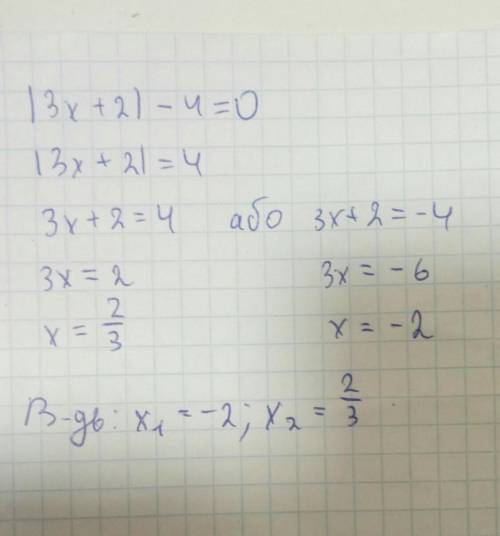 |3x + 2| - 4 = 0
|3x + 2| = 4
3x + 2 = 4 або 3x + 2 = -4
3x = 2 3x = -6
x = 2/3 x = -2
В-дь: x₁ = -2; x₂ = 2/3